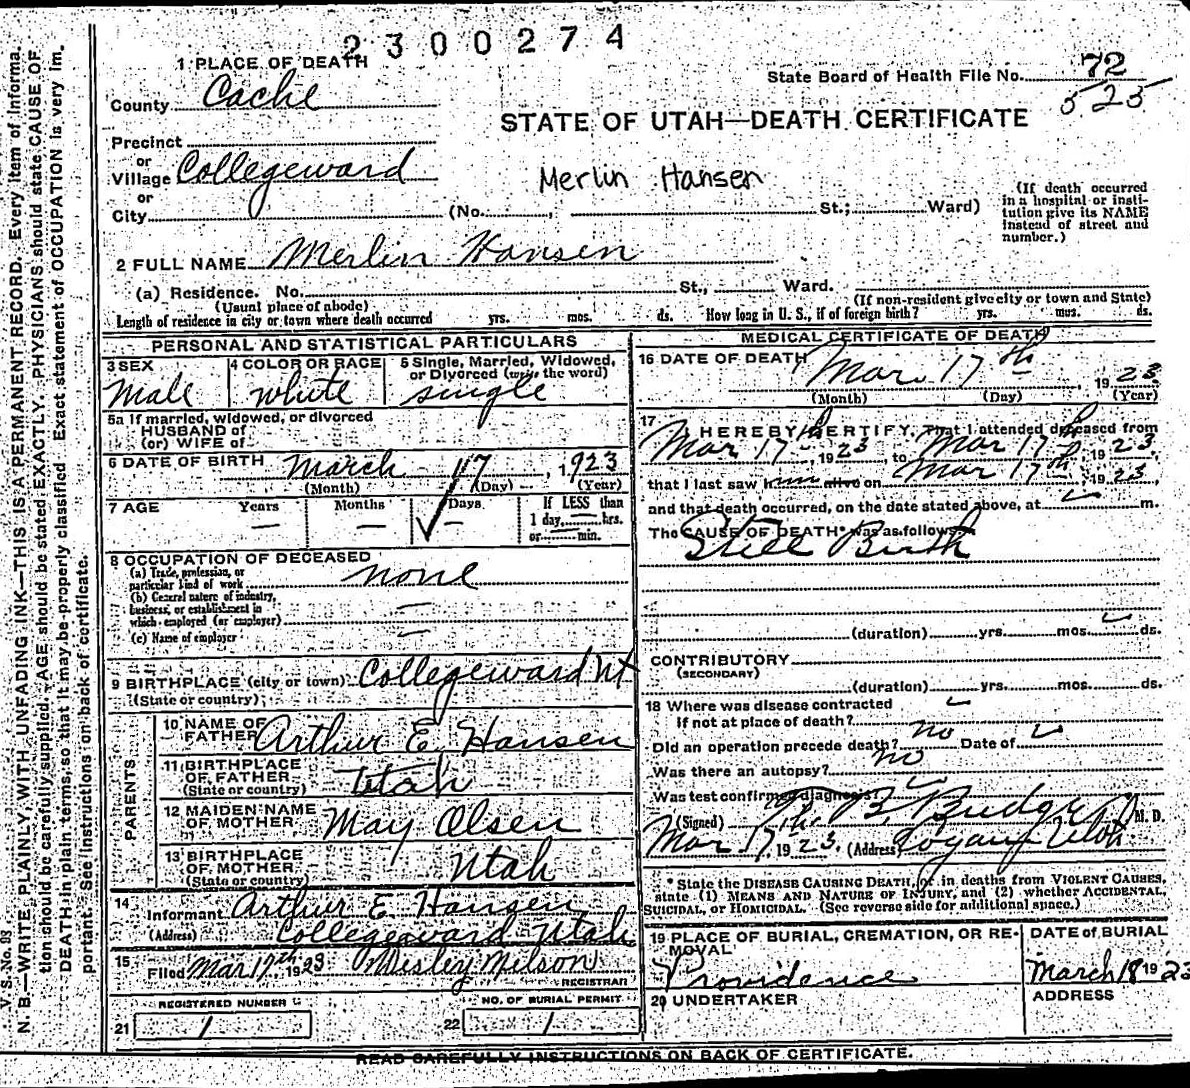 2300274
1 PLACE OF DEATH
State Board of Health File No. 72
525
County Cache
STATE OF UTAH—DEATH CERTIFICATE
Precinct
or
Village Collegeward
Merlin Hansen
or
City (No. , St.; Ward)
(If death occurred
in a hospital or insti-
tution give its NAME
instead of street and
number.)
2 FULL NAME Merlin Hansen
(a) Residence. No. St., Ward.
(Usual place of abode) (If non-resident give city or town and State)
Length of residence in city or town where death occurred yrs. mos. ds. How long in U. S., if of foreign birth? yrs. mos. ds.
PERSONAL AND STATISTICAL PARTICULARS
3 SEX 4 COLOR OR RACE 5 Single, Married, Widowed,
or Divorced (write the word)
Male white single
5a If married, widowed, or divorced
HUSBAND of
(or) WIFE of
6 DATE OF BIRTH March 17, 1923
(Month) (Day) (Year)
7 AGE Years Months Days If LESS than
1 day, hrs.
or min.
— — ✓ —
8 OCCUPATION OF DECEASED
(a) Trade, profession, or
particular kind of work none
(b) General nature of industry,
business, or establishment in
which employed (or employer) —
(c) Name of employer —
9 BIRTHPLACE (city or town) Collegeward Ut
(State or country)
PARENTS
10 NAME OF
FATHER Arthur E. Hansen
11 BIRTHPLACE
OF FATHER
(State or country) Utah
12 MAIDEN NAME
OF MOTHER May Olsen
13 BIRTHPLACE
OF MOTHER
(State or country) Utah
14 Informant Arthur E Hansen
(Address) Collegeward Utah
15 Filed Mar 17th, 1923 Wesley Nelson
REGISTRAR
REGISTERED NUMBER NO. OF BURIAL PERMIT
21 1 22 1
MEDICAL CERTIFICATE OF DEATH
16 DATE OF DEATH Mar. 17th, 1923
(Month) (Day) (Year)
17 I HEREBY CERTIFY, That I attended deceased from
Mar 17th, 1923 to Mar 17th, 1923
that I last saw him alive on Mar 17th, 1923
and that death occurred, on the date stated above, at m.
The CAUSE OF DEATH* was as follows:
Still Birth
(duration) yrs. mos. ds.
CONTRIBUTORY
(SECONDARY)
(duration) yrs. mos. ds.
18 Where was disease contracted
if not at place of death?
Did an operation precede death? no Date of
Was there an autopsy? no
Was test confirmed diagnosis?
(Signed) B. Budge M. D.
Mar 17, 1923. (Address) Logan, Utah
* State the DISEASE CAUSING DEATH, or in deaths from VIOLENT CAUSES,
state (1) MEANS AND NATURE OF INJURY, and (2) whether ACCIDENTAL,
SUICIDAL, or HOMICIDAL. (See reverse side for additional space.)
19 PLACE OF BURIAL, CREMATION, OR RE-
MOVAL
Providence
DATE of BURIAL
March 18 1923
20 UNDERTAKER
ADDRESS
READ CAREFULLY INSTRUCTIONS ON BACK OF CERTIFICATE.
V. S. No. 93
N. B.—WRITE PLAINLY, WITH UNFADING INK—THIS IS A PERMANENT RECORD. Every item of informa-
tion should be carefully supplied. AGE should be stated EXACTLY. PHYSICIANS should state CAUSE OF
DEATH in plain terms, so that it may be properly classified. Exact statement of OCCUPATION is very im-
portant. See instructions on back of certificate.